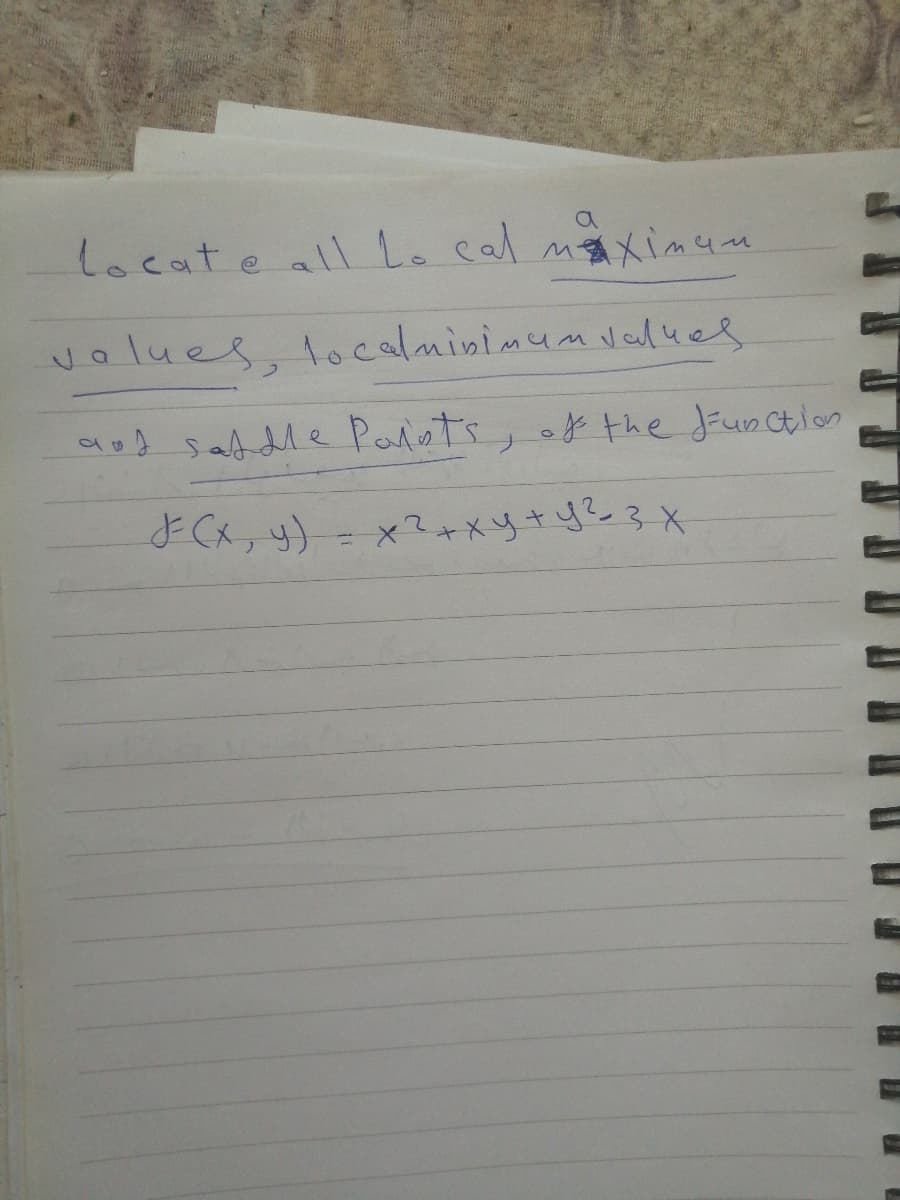 locate all Local maximum
values, local minimum values
and saddle Points, of the function
f(x, y) = x²+xy+y²-3x